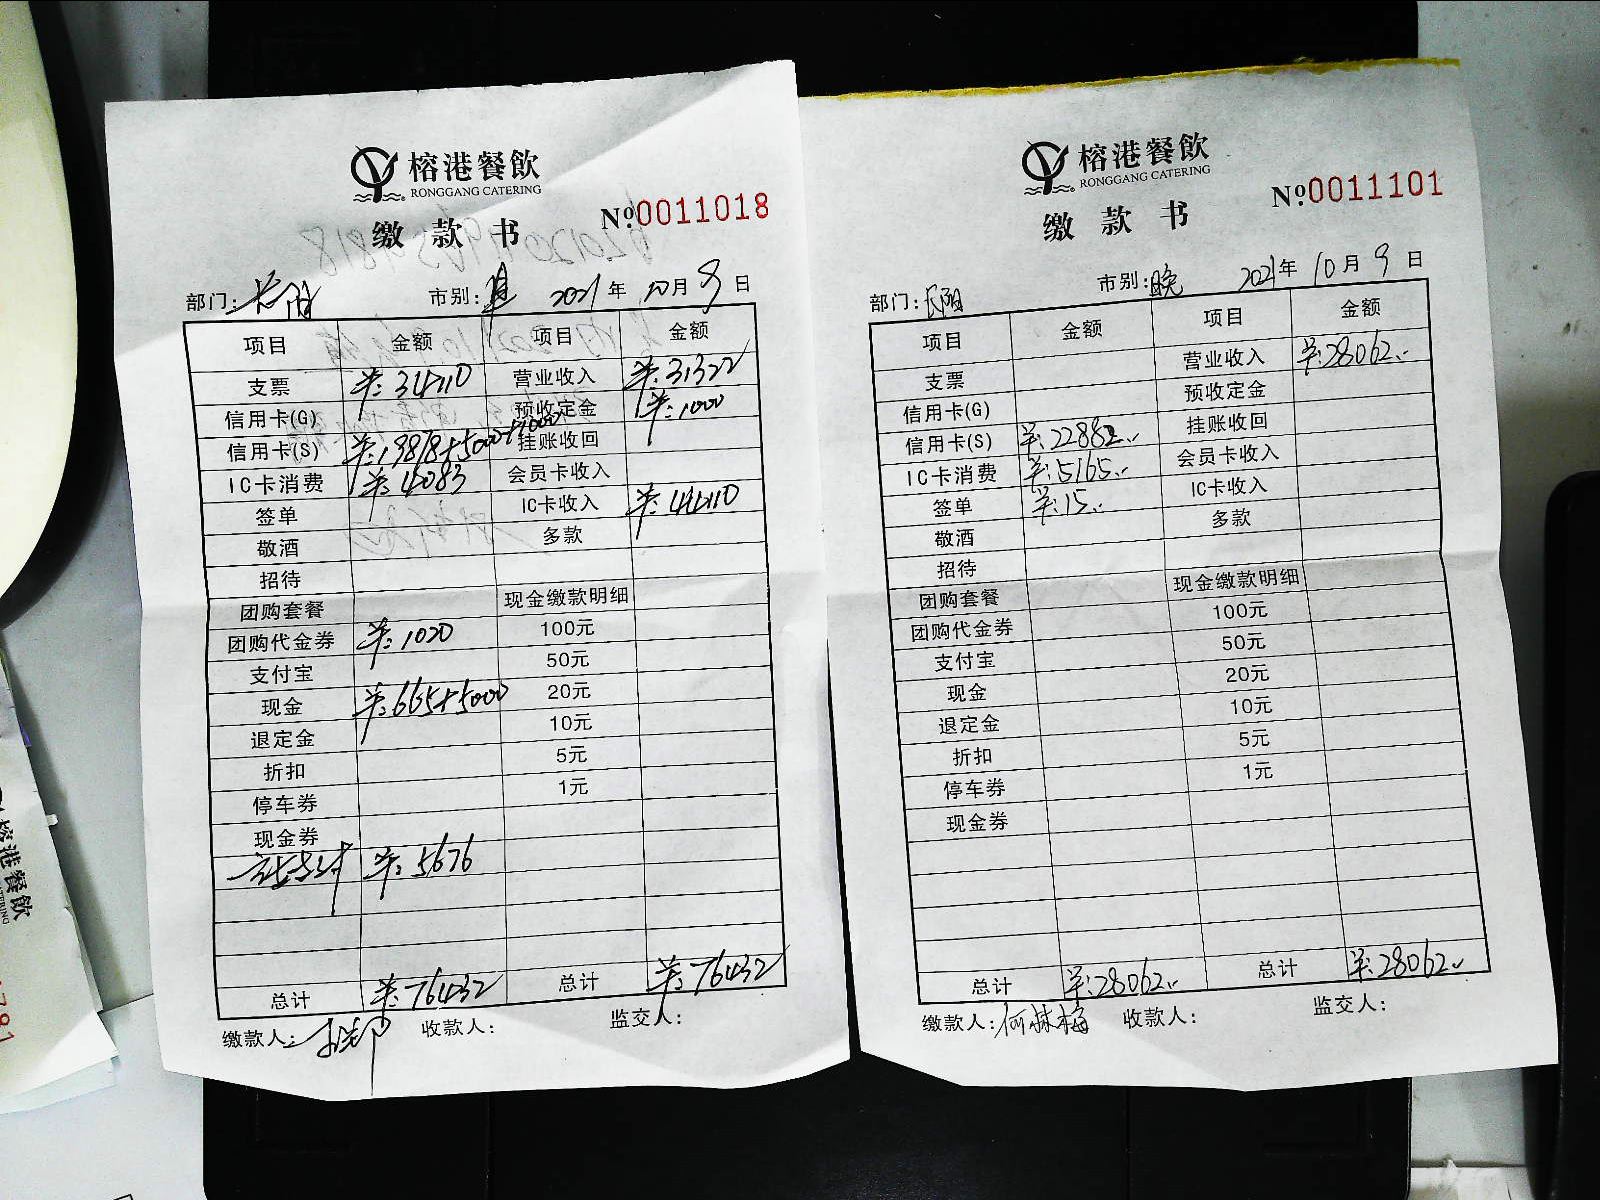 榕港餐飲
RONGGANG CATERING
缴款书
No.0011018
部门:长阳 市别: 2021年10月9日
项目 金额 项目 金额
支票 羊:34110 营业收入 羊:31322
信用卡(G) 预收定金 羊:1000
信用卡(S) 羊:19878+5000+1000 挂账收回
IC卡消费 羊:4083 会员卡收入
签单 IC卡收入 羊:44110
敬酒 多款
招待
团购套餐 现金缴款明细
团购代金券 羊:1020 100元
支付宝 50元
现金 羊:665+5000 20元
退定金 10元
折扣 5元
停车券 1元
现金券
羊:5676
总计 羊:76432 总计 羊:76432
缴款人: 收款人: 监交人:
榕港餐飲
RONGGANG CATERING
缴款书
No.0011101
部门:长阳 市别:晚 2021年10月9日
项目 金额 项目 金额
支票 营业收入 羊:28062..
信用卡(G) 预收定金
信用卡(S) 羊:22882.. 挂账收回
IC卡消费 羊:5165.. 会员卡收入
签单 羊:15.. IC卡收入
敬酒 多款
招待
团购套餐 现金缴款明细
团购代金券 100元
支付宝 50元
现金 20元
退定金 10元
折扣 5元
停车券 1元
现金券
总计 羊:28062.. 总计 羊:28062..
缴款人:何林梅 收款人: 监交人:
榕港餐飲